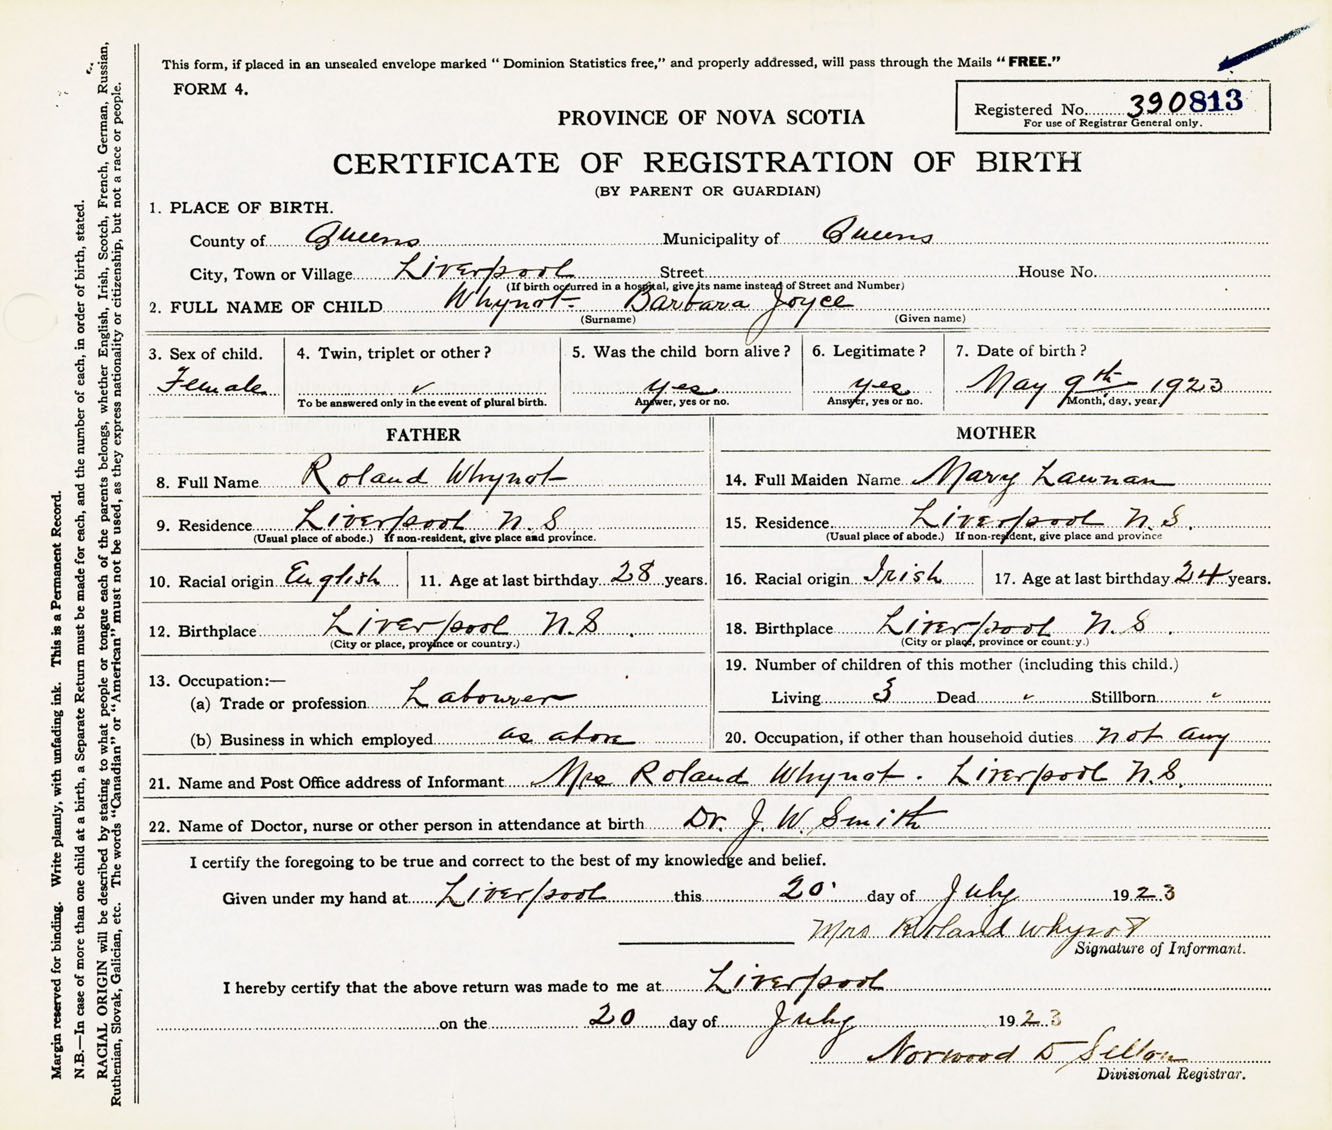 This form, if placed in an unsealed envelope marked "Dominion Statistics free," and properly addressed, will pass through the Mails "FREE."
FORM 4.
Registered No. 390813
For use of Registrar General only.
PROVINCE OF NOVA SCOTIA
CERTIFICATE OF REGISTRATION OF BIRTH
(BY PARENT OR GUARDIAN)
1. PLACE OF BIRTH.
County of Queens Municipality of Queens
City, Town or Village Liverpool Street House No.
(If birth occurred in a hospital, give its name instead of Street and Number)
2. FULL NAME OF CHILD Whynot Barbara Joyce
(Surname) (Given name)
3. Sex of child. 4. Twin, triplet or other? 5. Was the child born alive? 6. Legitimate? 7. Date of birth?
Female ✓ yes yes May 9th 1923
To be answered only in the event of plural birth. Answer, yes or no. Answer, yes or no. Month, day, year.
FATHER MOTHER
8. Full Name Roland Whynot 14. Full Maiden Name Mary Lawnan
9. Residence Liverpool N.S. 15. Residence Liverpool N.S.
(Usual place of abode.) If non-resident, give place and province. (Usual place of abode.) If non-resident, give place and province
10. Racial origin English 11. Age at last birthday 28 years. 16. Racial origin Irish 17. Age at last birthday 24 years.
12. Birthplace Liverpool N.S. 18. Birthplace Liverpool N.S.
(City or place, province or country.) (City or place, province or country.)
13. Occupation:— 19. Number of children of this mother (including this child.)
(a) Trade or profession Labourer Living 3 Dead " Stillborn "
(b) Business in which employed as above 20. Occupation, if other than household duties not any
21. Name and Post Office address of Informant Mrs Roland Whynot. Liverpool N.S.
22. Name of Doctor, nurse or other person in attendance at birth Dr. J. W. Smith
I certify the foregoing to be true and correct to the best of my knowledge and belief.
Given under my hand at Liverpool this 20 day of July 1923
Mrs Roland Whynot
Signature of Informant.
I hereby certify that the above return was made to me at Liverpool
on the 20 day of July 1923
Norwood D
Divisional Registrar.
Margin reserved for binding. Write plainly, with unfading ink. This is a Permanent Record.
N.B.—In case of more than one child at a birth, a Separate Return must be made for each, and the number of each, in order of birth, stated.
RACIAL ORIGIN will be described by stating to what people or tongue each of the parents belongs, whether English, Irish, Scotch, French, German, Russian,
Ruthenian, Slovak, Galician, etc. The words "Canadian" or "American" must not be used, as they express nationality or citizenship, but not a race or people.